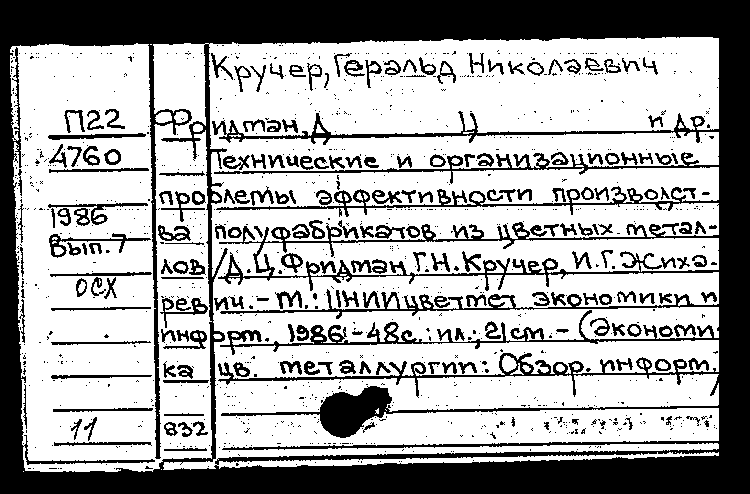 Кручер, Геральд Николаевич
П22 Фридман, Д Ц и др.
4760 Технические и организационные
проблемы эффективности производст-
1986 ва полуфабрикатов из цветных метал-
Вып.7 лов /Д.Ц.Фридман, Г.Н.Кручер, И.Г.Жиха-
ОСХ ревич.-М.: ЦНИИцветмет экономики и
информ., 1986.-48с.: ил.; 21см.-(Экономи-
ка цв. металлургии: Обзор. информ./
11 832